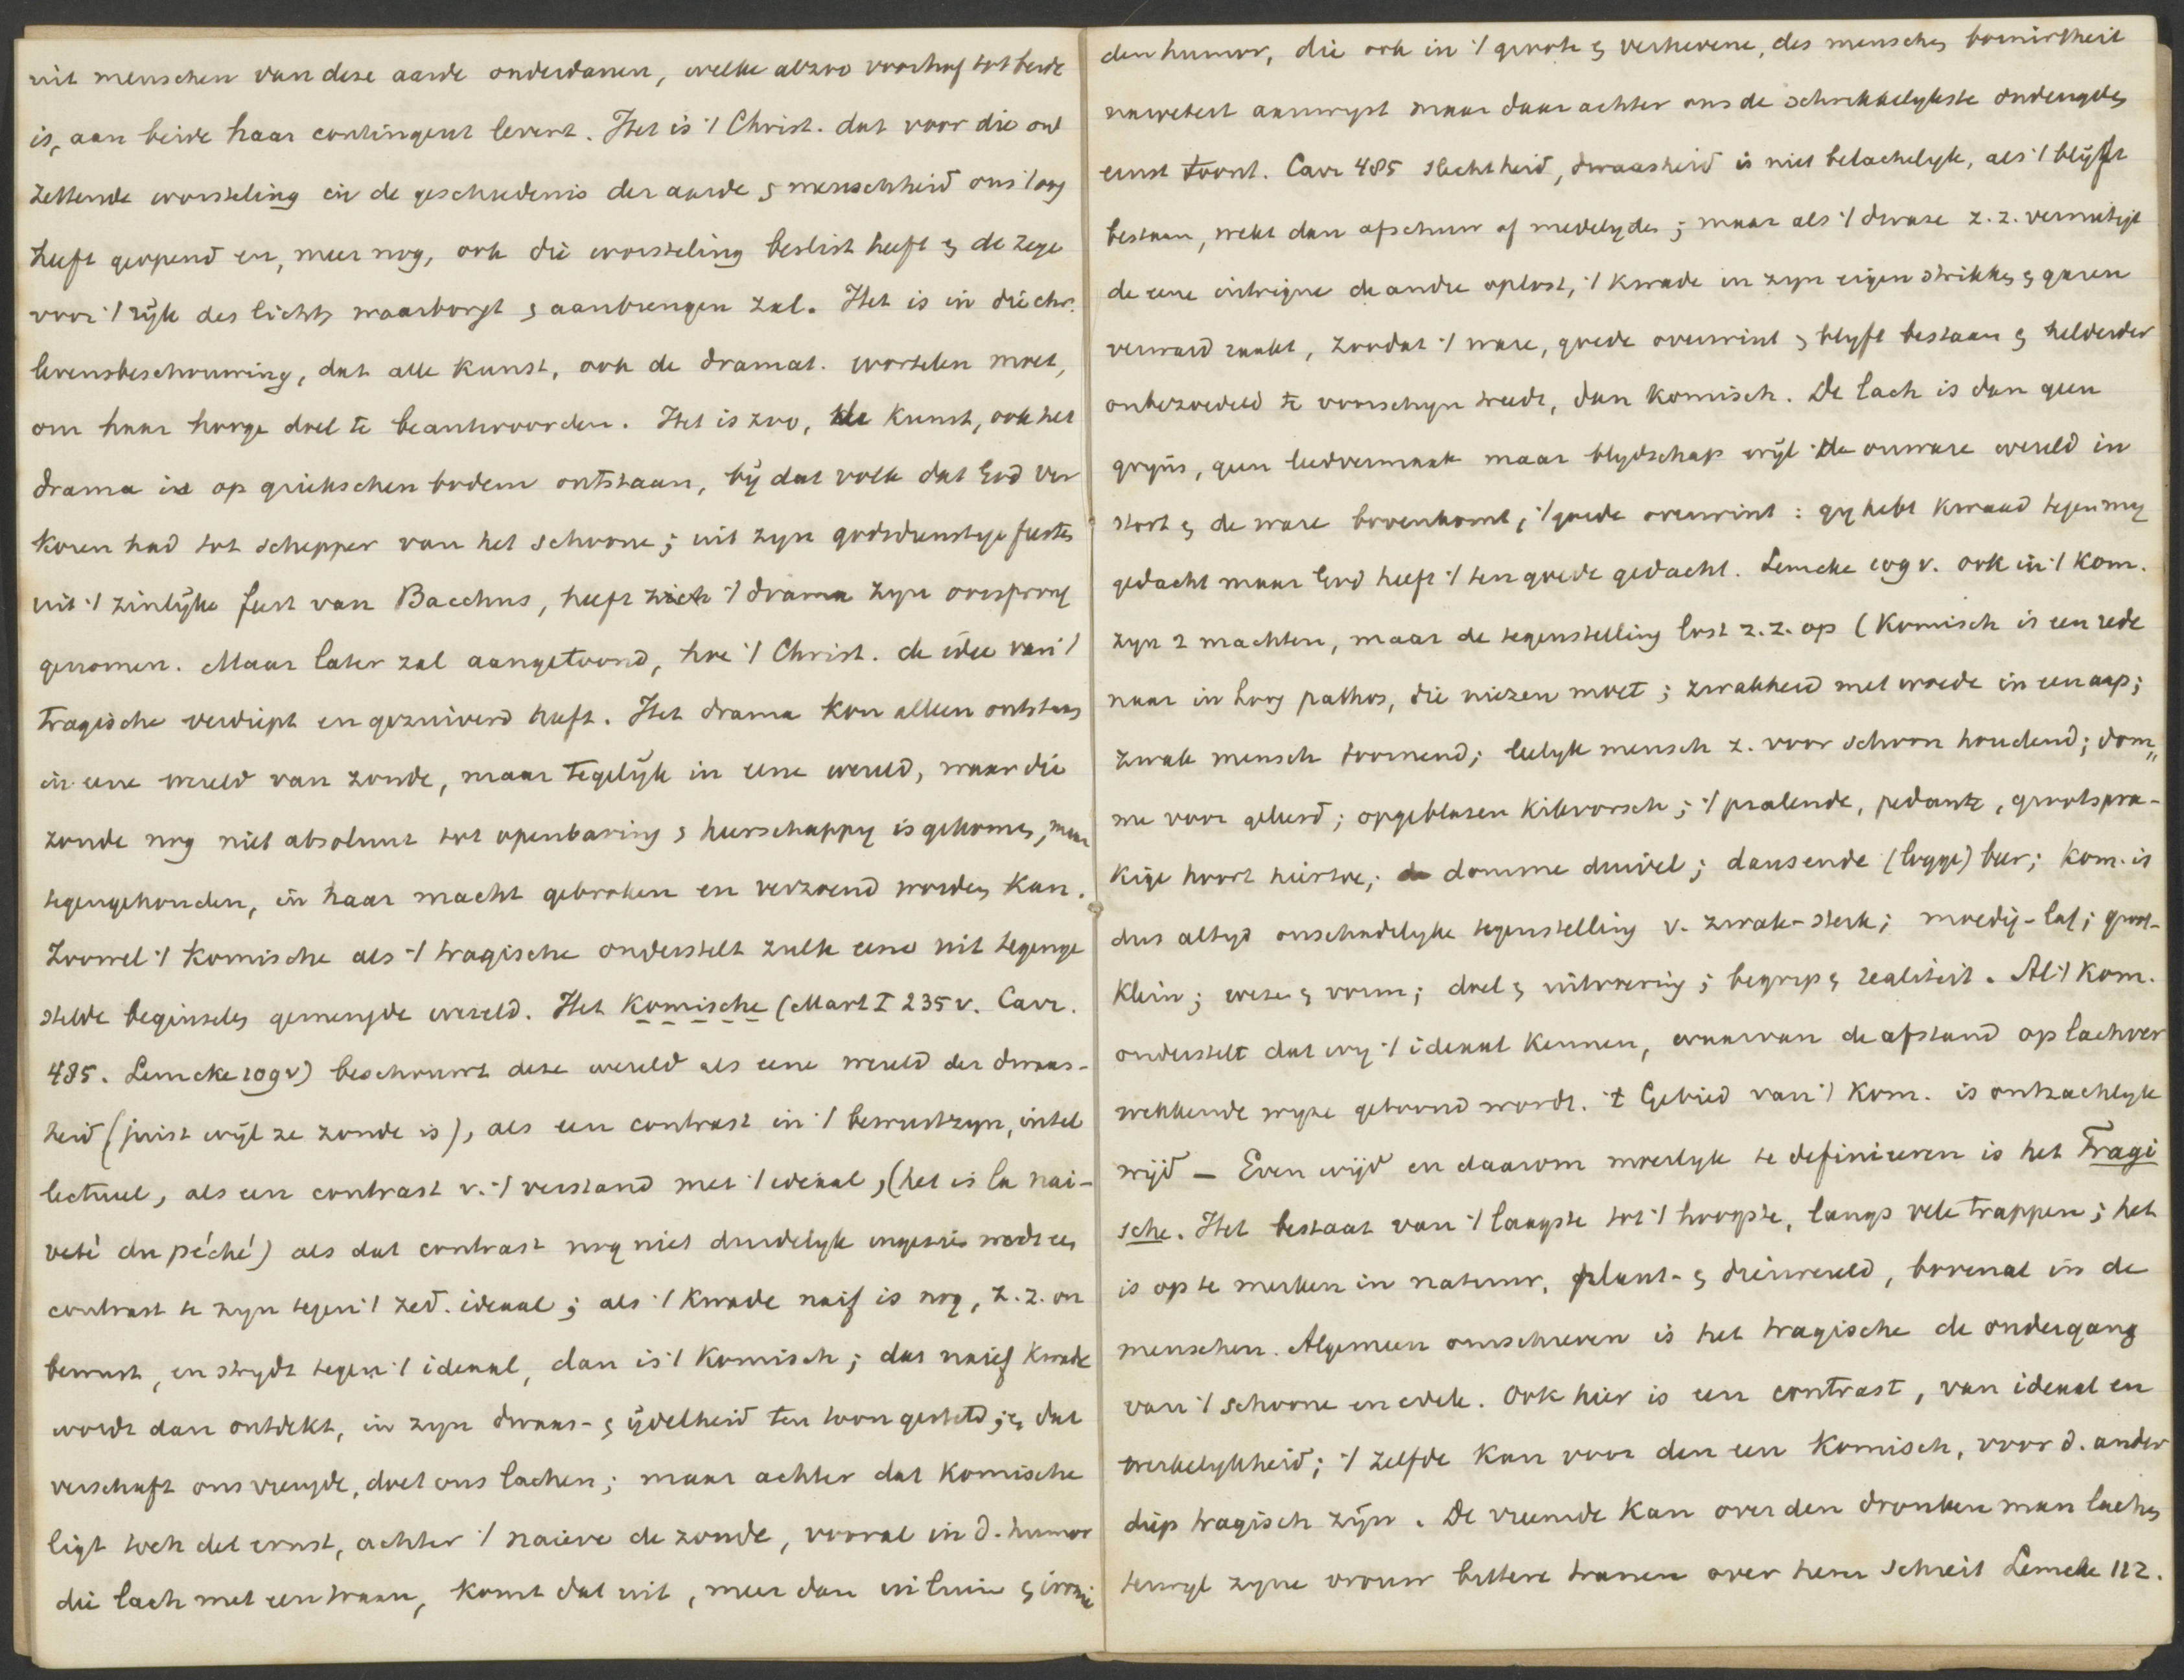 uit menschen van deze aarde onderdanen, welke alzoo voorhof tot beide
is, aan beide haar contingent levert. Het is 't Christ. dat voor die ont
zettende worsteling in de geschiedenis der aarde & menschheid ons 't oog
heeft geopend en, meer nog, ook die worsteling beslist heeft & de zege
voor 't rijk des lichts waarborgt & aanbrengen zal. Het is in die chr.
levensbeschouwing, dat alle kunst, ook de dramat. wortelen moet,
om haar hooge doel te beantwoorden. Het is zoo, de kunst, ook het
drama is op griekschen bodem ontstaan, bij dat volk dat God ver
koren had tot schepper van het schoone; uit zyn godsdienstige feesten
uit 't zinlijke feest van Bacchus, heeft zich 't drama zyn oorsprong
genomen. Maar later zal aangetoond, hoe 't Christ. de idee van 't
tragische verdiept en gezuiverd heeft. Het drama kon alleen ontstaan
in eene wereld van zonde, maar tegelijk in eene wereld, waar die
zonde nog niet absoluut tot openbaring & heerschappy is gekomen, maar
tegengehouden, in haar macht gebroken en verzoend worden kan.
Zoowel 't komische als 't tragische onderstelt zulk eene uit tegenge
stelde beginselen gemengde wereld. Het komische (Mart I 235 v. Carr.
485. Lemcke 109 v) beschouwt deze wereld als eene wereld der dwaas-
heid (juist wijl ze zonde is), als een contrast in 't bewustzyn, intel
lectueel, als een contrast v. 't verstand met 't ideaal, (het is la nai-
veté du péché) als dat contrast nog niet duidelyk ingezien wordt een
contrast te zyn tegen 't zed. ideaal; als 't kwade naif is nog, z.z. on
bewust, en strydt tegen 't ideaal, dan is 't komisch; dat naief kwade
wordt dan ontdekt, in zyn dwaas- & ijdelheid ten toon gesteld; & dat
verschaft ons vreugde, doet ons lachen; maar achter dat komische
ligt toch de ernst, achter 't naieve de zonde, vooral in d. humor
die lach met een traan, komt dat uit, meer dan in luim & ironie
den humor, die ook in 't groote & verhevene, des menschen bornirtheit
aanwyst maar daar achter ons de schrikkelykste ondeugden
ernst toont. Carr 485 slechtheid, dwaasheid is niet belachelyk, als 't blijft
bestaan, wekt dan afschuw of medelyden; maar als 't dwaze z.z. vernietigt
de eene intrigue de andre oplost, 't kwade in zyn eigen strikken & garen
verward raakt, zoodat 't ware, goede overwint & blyft bestaan & helderder
onbezoedeld te voorschyn treedt, dan komisch. De lach is dan geen
gryns, geen leedvermaak maar blydschap wijl de onware wereld in
stort & de ware bovenkomt, 't goede overwint: gy hebt kwaad tegen my
gedacht maar God heeft 't ten goede gedacht. Lemcke 109 v. ook in 't kom.
zyn 2 machten, maar de tegenstelling lost z.z. op (komisch is een rede
naar in hoog pathos, die niezen moet; zwakheid met woede in een aap;
zwak mensch toornend; leelyk mensch z. voor schoon houdend; dom„
me voor geleerd; opgeblazen kikvorsch; 't pralende, pedante, grootspra-
kige hoort hiertoe; domme duivel; dansende (logge) beer; kom. is
dus altyd onschadelyke tegenstelling v. zwak-sterk; moedig-laf; groot-
klein; wezen & vorm; doel & uitvoering; begrip & realiteit. Al 't kom.
onderstelt dat wy 't ideaal kennen, waarvan de afstand op lachver
wekkende wyze getoond wordt. 't Gebied van 't kom. is ontzachlyk
wijd — Even wijd en daarom moeilyk te definieeren is het Tragi
sche. Het bestaat van 't laagste tot 't hoogste, langs vele trappen; het
is op te merken in natuur, plant- & dierwereld, bovenal in de
menschen. Algemeen omschreven is het tragische de ondergang
van 't schoone en edele. Ook hier is een contrast, van ideaal en
werkelykheid; 't zelfde kan voor den een komisch, voor d. ander
diep tragisch zijn. De vreemde kan over den dronken man lachen
terwyl zyne vrouw bittere tranen over hem schreit Lemcke 112.